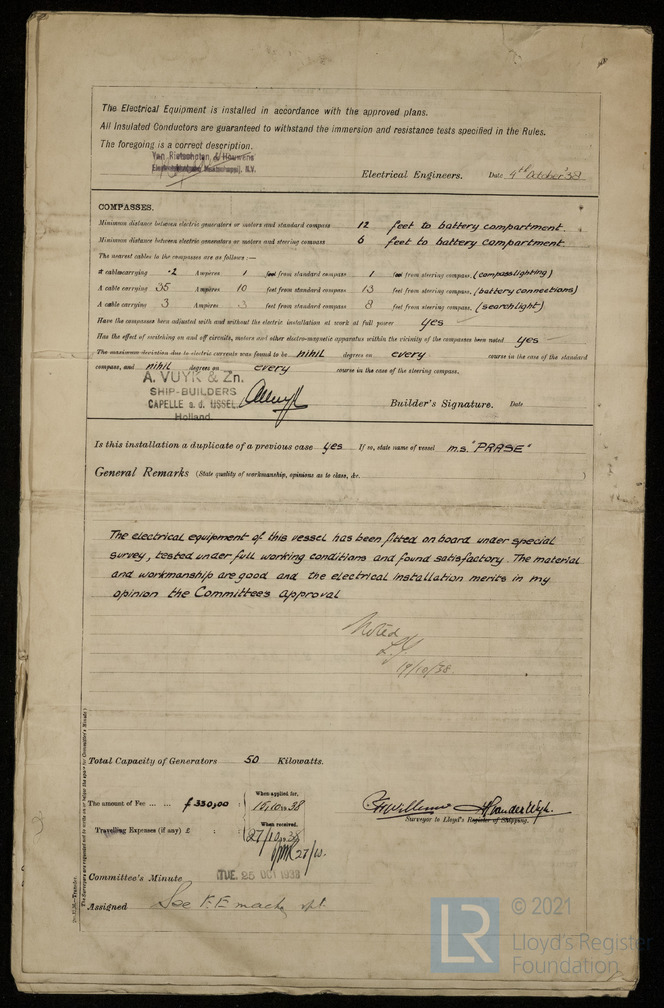 The Electrical Equipment is installed in accordance with the approved plans.
All Insulated Conductors are guaranteed to withstand the immersion and resistance tests specified in the Rules.
The foregoing is a correct description.
Van Rietschoten & Houwens
Electrotechnische Maatschappij, N.V.
Electrical Engineers. Date 4th October '38
COMPASSES.
Minimum distance between electric generators or motors and standard compass 12 feet to battery compartment.
Minimum distance between electric generators or motors and steering compass 6 feet to battery compartment
The nearest cables to the compasses are as follows :—
A cable carrying ·2 Ampères 1 feet from standard compass 1 feet from steering compass. (compasslighting)
A cable carrying 35 Ampères 10 feet from standard compass 13 feet from steering compass. (battery connections)
A cable carrying 3 Ampères 3 feet from standard compass 8 feet from steering compass. (searchlight)
Have the compasses been adjusted with and without the electric installation at work at full power yes
Has the effect of switching on and off circuits, motors and other electro-magnetic apparatus within the vicinity of the compasses been noted yes
The maximum deviation due to electric currents was found to be nihil degrees on every course in the case of the standard
compass, and nihil degrees on every course in the case of the steering compass.
A. VUYK & Zn.
SHIP-BUILDERS
CAPELLE a. d. IJSSEL
Holland.
Builder's Signature. Date
Is this installation a duplicate of a previous case yes If so, state name of vessel m.s. "PRASE"
General Remarks (State quality of workmanship, opinions as to class, &c. )
The electrical equipment of this vessel has been fitted on board under special
survey, tested under full working conditions and found satisfactory. The material
and workmanship are good and the electrical installation merits in my
opinion the Committee's approval
Noted
19/10/38.
Total Capacity of Generators 50 Kilowatts.
The amount of Fee ... ... £ 330,00 :
When applied for,
15.10.1938
Travelling Expenses (if any) £ :
When received,
27/10.1938
27/10.
Surveyor to Lloyd's Register of Shipping.
Committee's Minute TUE. 25 OCT 1938
Assigned See F.E. mach rpt.
© 2021
Lloyd's Register
Foundation
LR